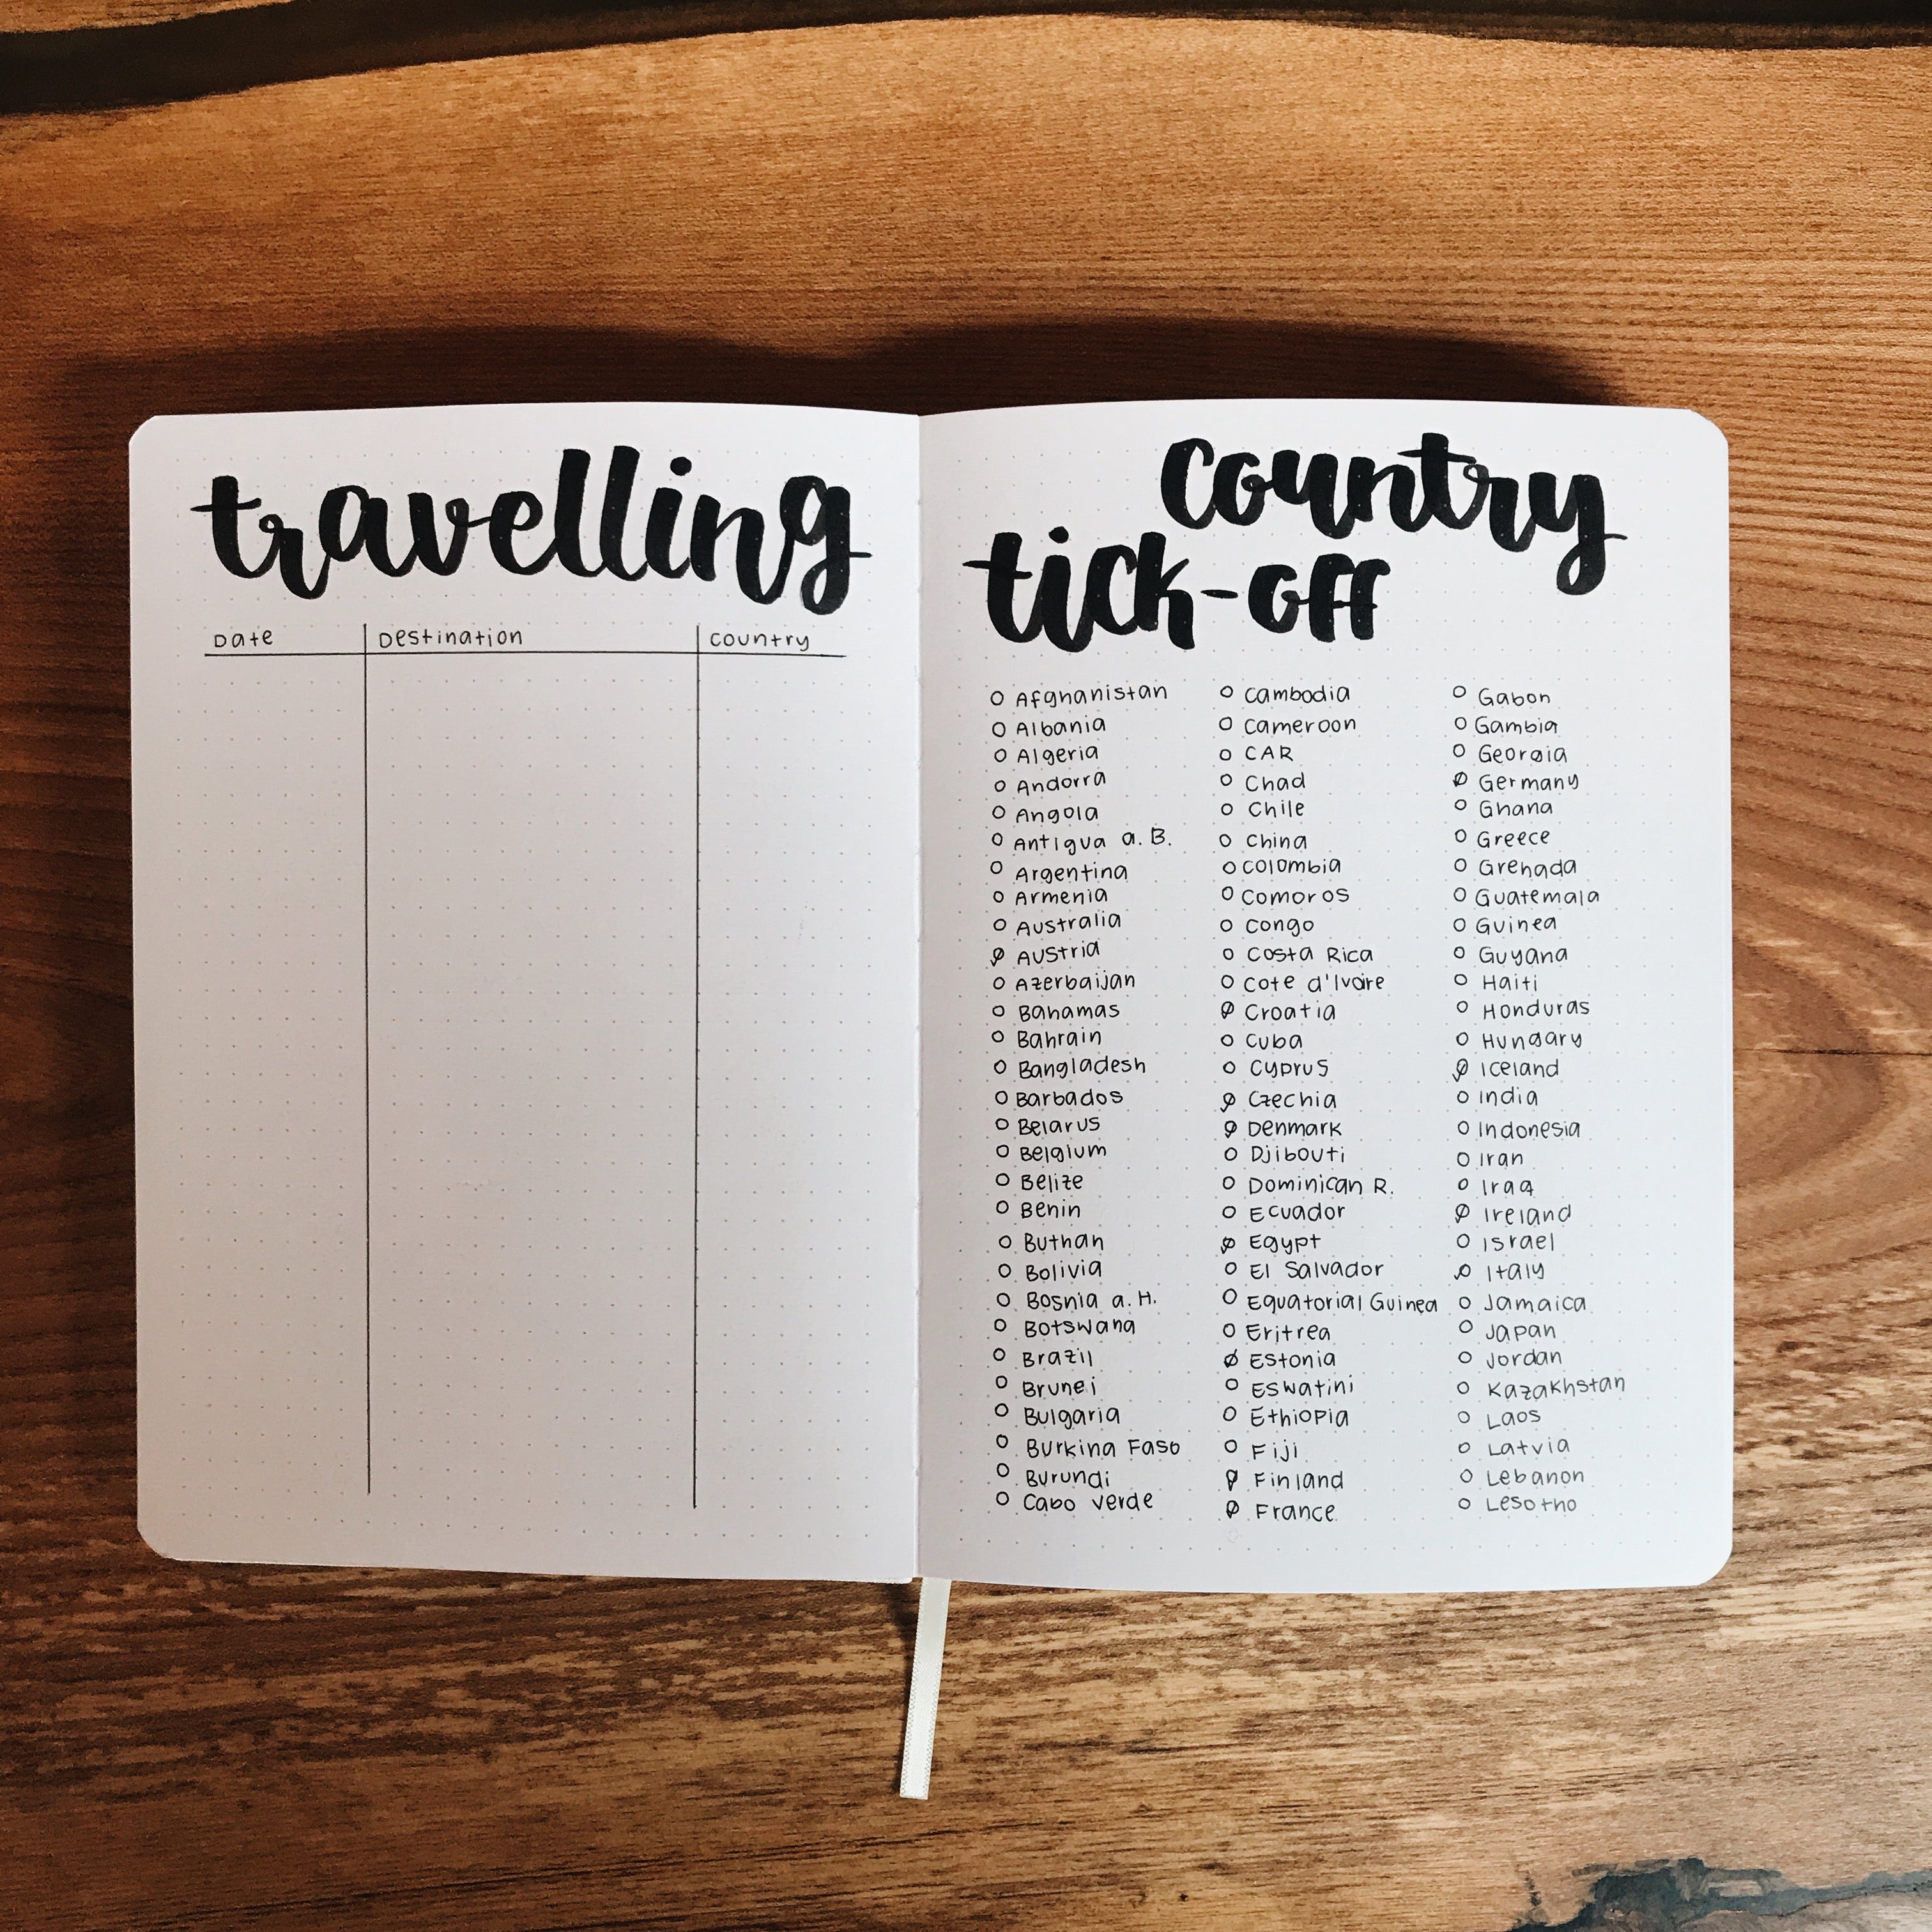 travelling
Date Destination Country
country
tick-off
Afghanistan
Albania
Algeria
Andorra
Angola
Antigua a. B.
Argentina
Armenia
Australia
Austria
Azerbaijan
Bahamas
Bahrain
Bangladesh
Barbados
Belarus
Belgium
Belize
Benin
Buthan
Bolivia
Bosnia a. H.
Botswana
Brazil
Brunei
Bulgaria
Burkina Faso
Burundi
Cabo verde
Cambodia
Cameroon
CAR
Chad
Chile
China
Colombia
Comoros
Congo
Costa Rica
Cote d'Ivoire
Croatia
Cuba
Cyprus
Czechia
Denmark
Djibouti
Dominican R.
Ecuador
Egypt
El Salvador
Equatorial Guinea
Eritrea
Estonia
Eswatini
Ethiopia
Fiji
Finland
France
Gabon
Gambia
Georgia
Germany
Ghana
Greece
Grenada
Guatemala
Guinea
Guyana
Haiti
Honduras
Hungary
Iceland
India
Indonesia
Iran
Iraq
Ireland
Israel
Italy
Jamaica
Japan
Jordan
Kazakhstan
Laos
Latvia
Lebanon
Lesotho